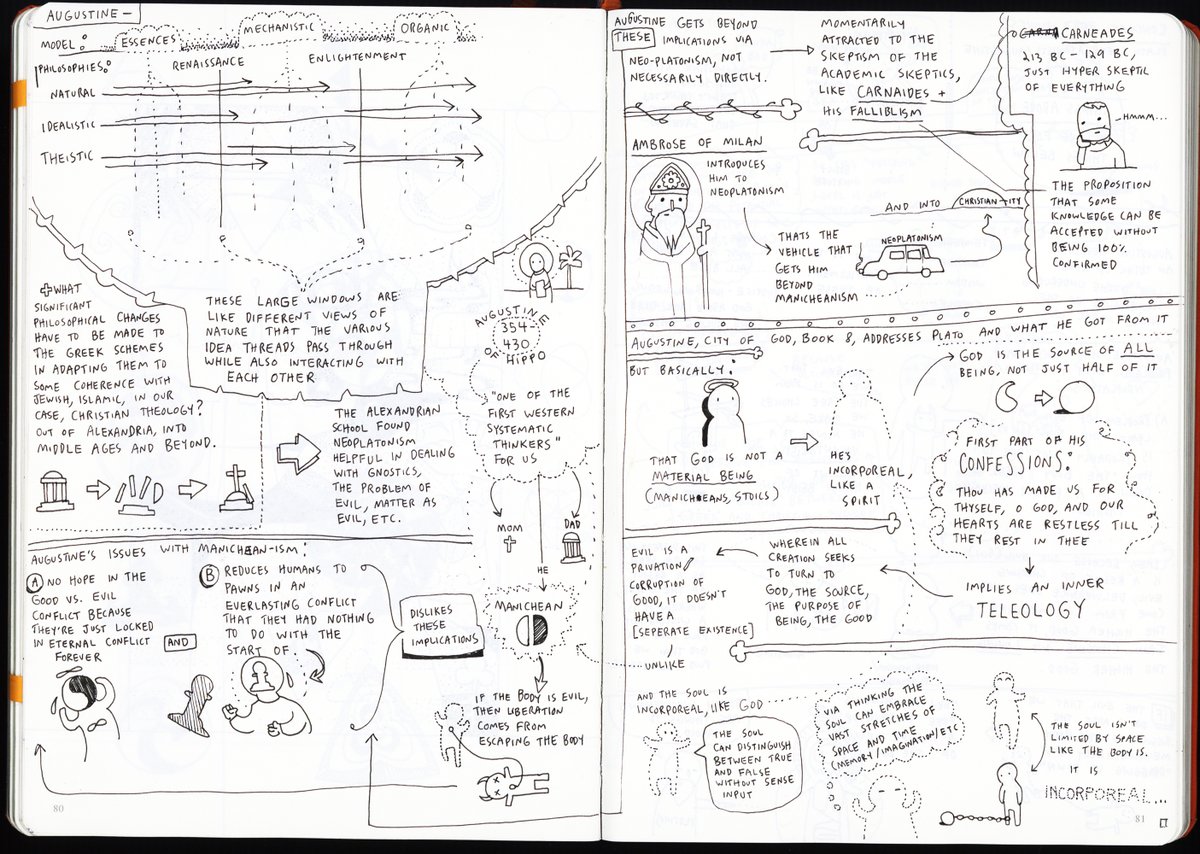 AUGUSTINE —
MODEL:
ESSENCES
MECHANISTIC
ORGANIC
PHILOSOPHIES:
RENAISSANCE
ENLIGHTENMENT
NATURAL
IDEALISTIC
THEISTIC
WHAT
SIGNIFICANT
PHILOSOPHICAL CHANGES
HAVE TO BE MADE TO
THE GREEK SCHEMES
IN ADAPTING THEM TO
SOME COHERENCE WITH
JEWISH, ISLAMIC, IN OUR
CASE, CHRISTIAN THEOLOGY?
OUT OF ALEXANDRIA, INTO
MIDDLE AGES AND BEYOND.
THESE LARGE WINDOWS ARE
LIKE DIFFERENT VIEWS OF
NATURE THAT THE VARIOUS
IDEA THREADS PASS THROUGH
WHILE ALSO INTERACTING WITH
EACH OTHER
THE ALEXANDRIAN
SCHOOL FOUND
NEOPLATONISM
HELPFUL IN DEALING
WITH GNOSTICS,
THE PROBLEM OF
EVIL, MATTER AS
EVIL, ETC.
AUGUSTINE
354
430
OF HIPPO
"ONE OF THE
FIRST WESTERN
SYSTEMATIC
THINKERS"
FOR US
MOM
DAD
HE
MANICHEAN
IF THE BODY IS EVIL,
THEN LIBERATION
COMES FROM
ESCAPING THE BODY
AUGUSTINE'S ISSUES WITH MANICHEAN-ISM:
A NO HOPE IN THE
GOOD VS. EVIL
CONFLICT BECAUSE
THEY'RE JUST LOCKED
IN ETERNAL CONFLICT
FOREVER
AND
B REDUCES HUMANS TO
PAWNS IN AN
EVERLASTING CONFLICT
THAT THEY HAD NOTHING
TO DO WITH THE
START OF.
DISLIKES
THESE
IMPLICATIONS
80
AUGUSTINE GETS BEYOND
THESE IMPLICATIONS VIA
NEO-PLATONISM, NOT
NECESSARILY DIRECTLY.
MOMENTARILY
ATTRACTED TO THE
SKEPTISM OF THE
ACADEMIC SKEPTICS,
LIKE CARNAIDES +
HIS FALLIBLISM
CARNEADES
213 BC - 129 BC,
JUST HYPER SKEPTIC
OF EVERYTHING
HMMM...
THE PROPOSITION
THAT SOME
KNOWLEDGE CAN BE
ACCEPTED WITHOUT
BEING 100%
CONFIRMED
AMBROSE OF MILAN
INTRODUCES
HIM TO
NEOPLATONISM
THATS THE
VEHICLE THAT
GETS HIM
BEYOND
MANICHEANISM
NEOPLATONISM
AND INTO
CHRISTIAN-ITY
AUGUSTINE, CITY OF GOD, BOOK 8, ADDRESSES PLATO AND WHAT HE GOT FROM IT
BUT BASICALLY:
THAT GOD IS NOT A
MATERIAL BEING
(MANICHEANS, STOICS)
HE'S
INCORPOREAL,
LIKE A
SPIRIT
GOD IS THE SOURCE OF ALL
BEING, NOT JUST HALF OF IT
FIRST PART OF HIS
CONFESSIONS:
THOU HAS MADE US FOR
THYSELF, O GOD, AND OUR
HEARTS ARE RESTLESS TILL
THEY REST IN THEE
IMPLIES AN INNER
TELEOLOGY
WHEREIN ALL
CREATION SEEKS
TO TURN TO
GOD, THE SOURCE,
THE PURPOSE OF
BEING, THE GOOD
EVIL IS A
PRIVATION/
CORRUPTION OF
GOOD, IT DOESN'T
HAVE A
[SEPERATE EXISTENCE]
UNLIKE
AND THE SOUL IS
INCORPOREAL, LIKE GOD
THE SOUL
CAN DISTINGUISH
BETWEEN TRUE
AND FALSE
WITHOUT SENSE
INPUT
VIA THINKING THE
SOUL CAN EMBRACE
VAST STRETCHES OF
SPACE AND TIME
(MEMORY/IMAGINATION/ETC
THE SOUL ISN'T
LIMITED BY SPACE
LIKE THE BODY IS.
IT IS
INCORPOREAL...
81